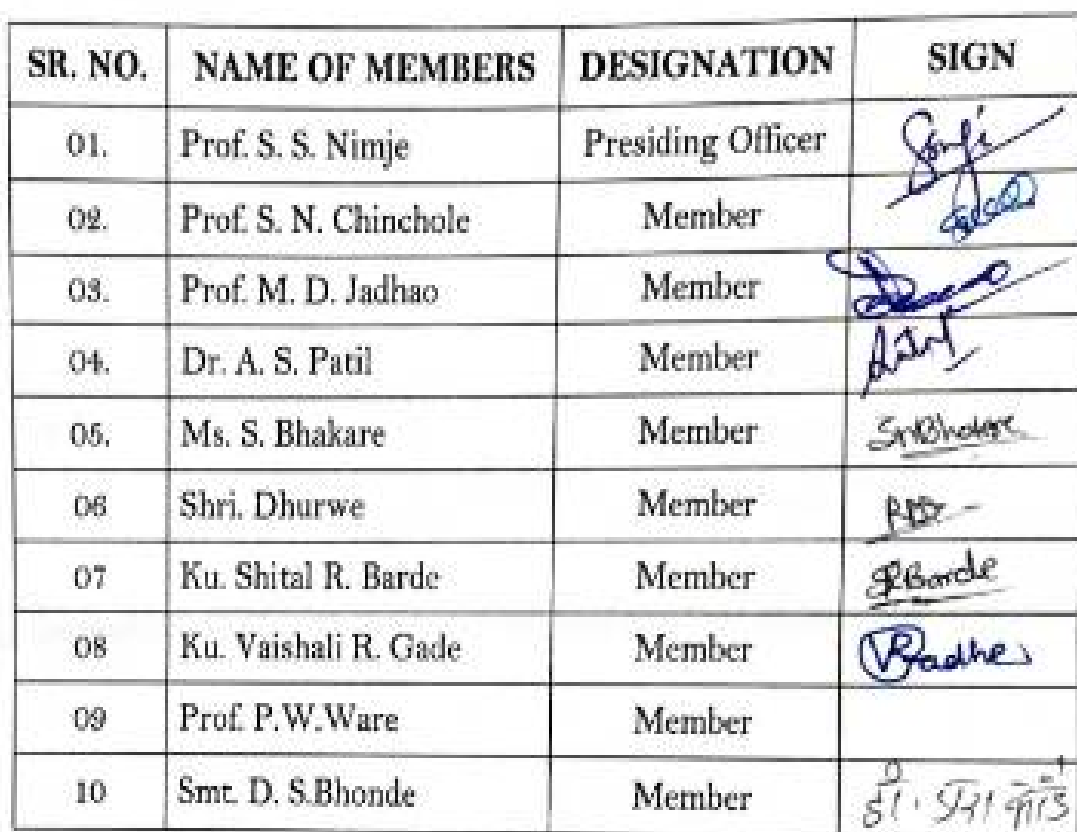 SR. NO. NAME OF MEMBERS DESIGNATION SIGN
01. Prof. S. S. Nimje Presiding Officer
02. Prof. S. N. Chinchole Member
03. Prof. M. D. Jadhao Member
04. Dr. A. S. Patil Member
05. Ms. S. Bhakare Member
06 Shri. Dhurwe Member
07 Ku. Shital R. Barde Member SRBarde
08 Ku. Vaishali R. Gade Member
09 Prof. P.W.Ware Member
10 Smt. D. S.Bhonde Member